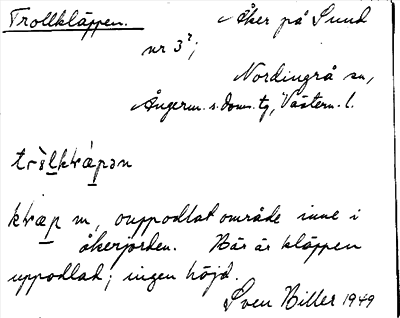 Trollkläppen.
Åker på Sund
nr 3²;
Nordingrå sn,
Ångerm. s. doms. tg, Västern. l.
kɫæp m, ouppodlat område inne i
åkerjorden. Bär är kläppen
uppodlad; ingen höjd.
Sven Biller 1949